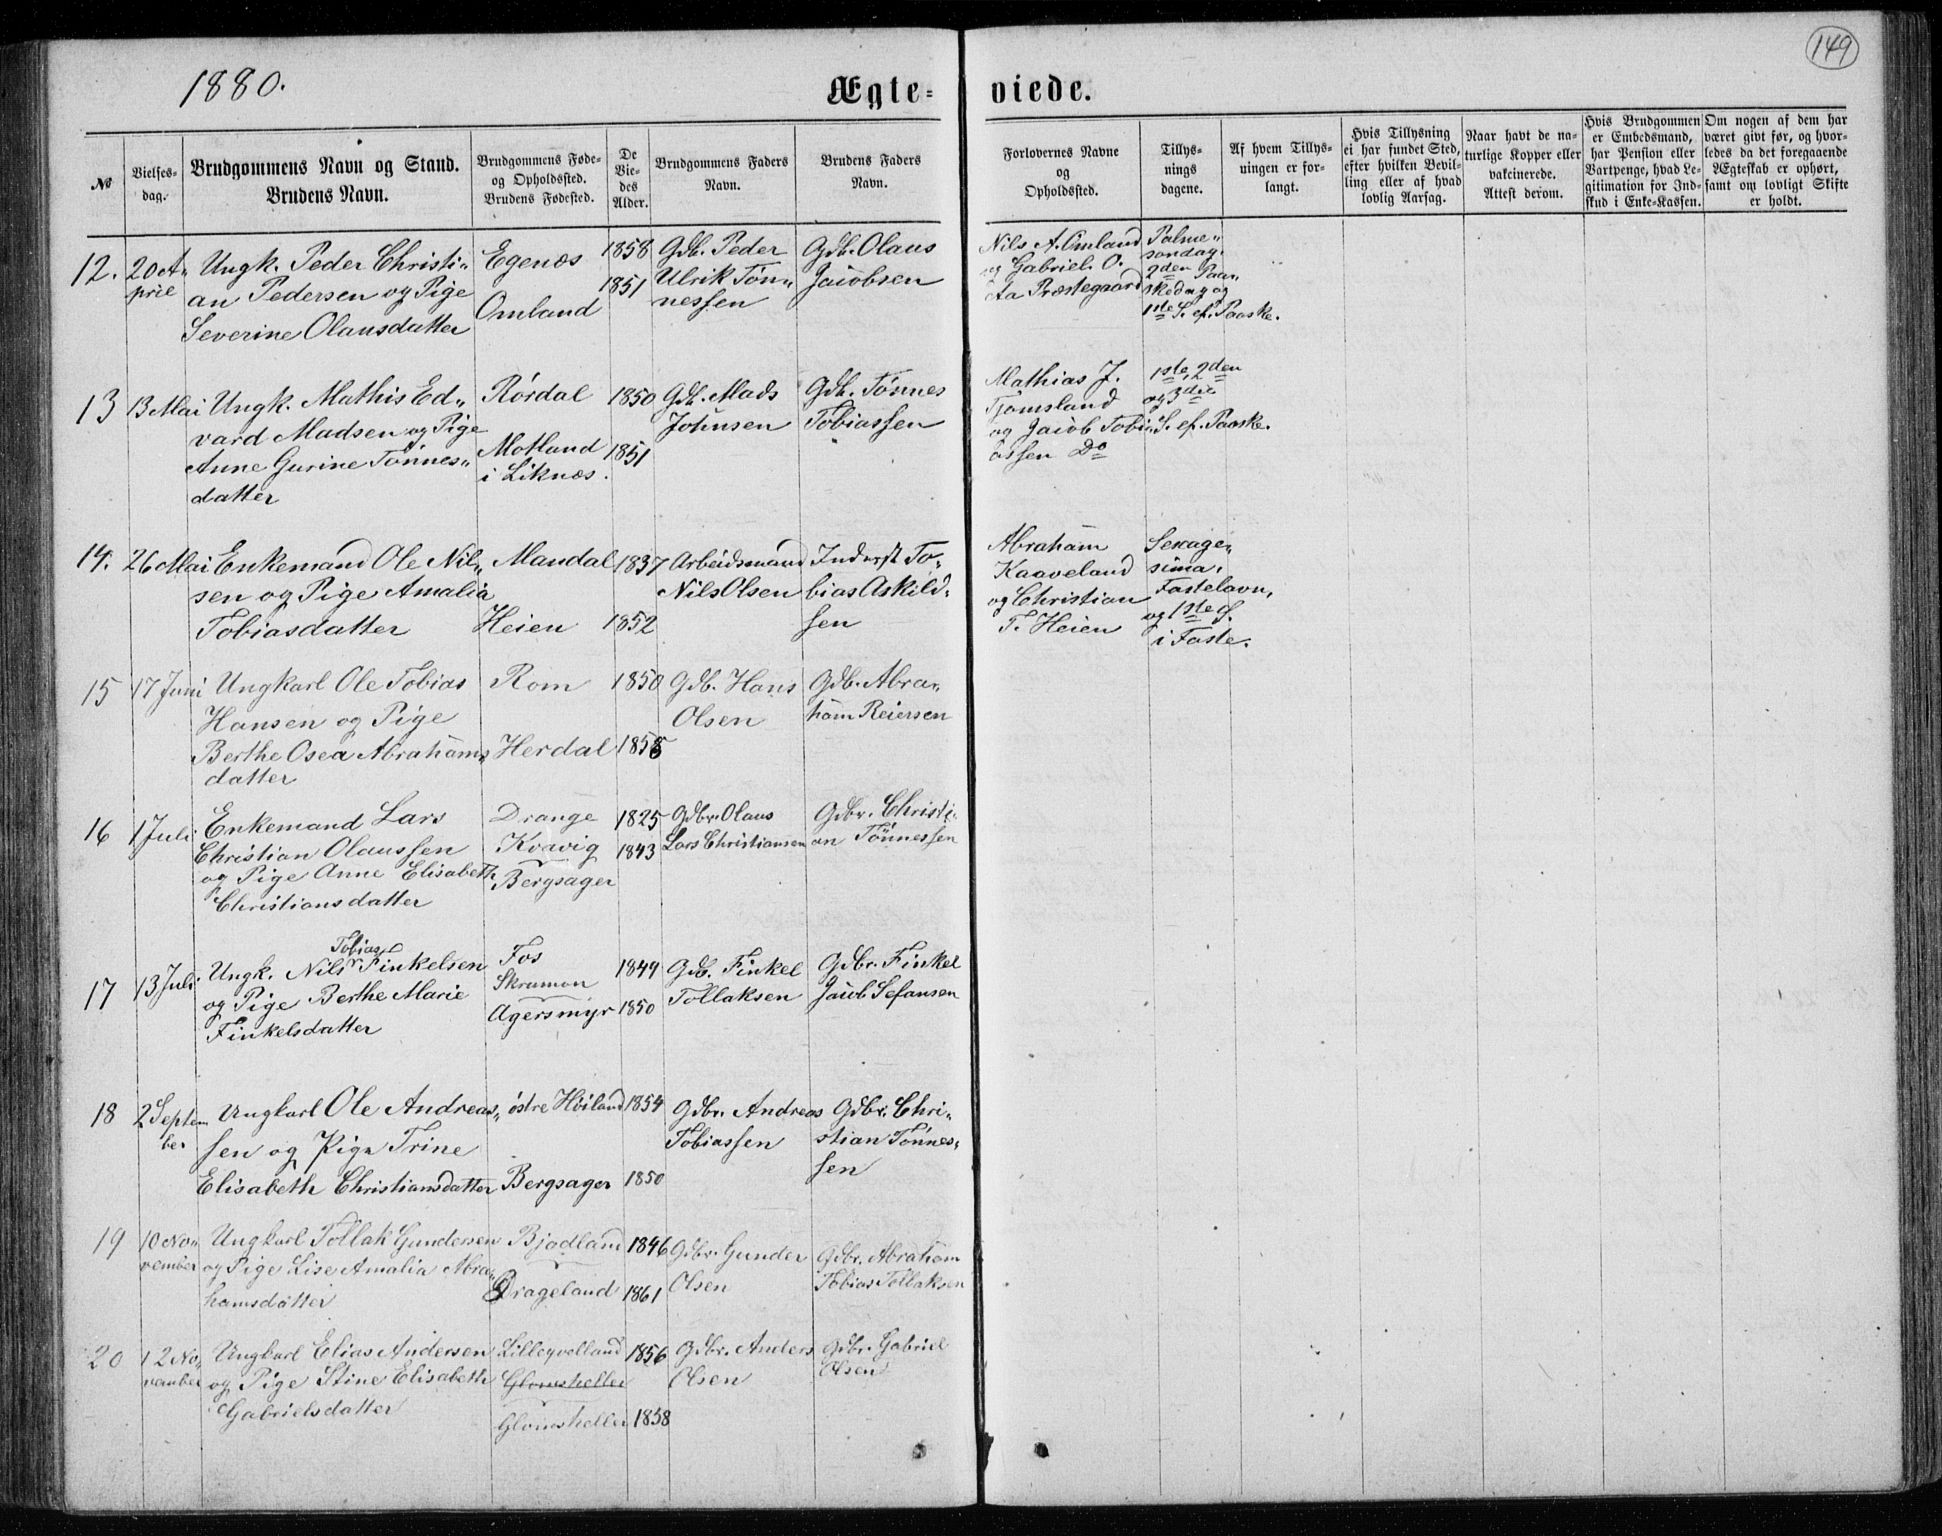 149
1880.
Ægte- viede.
No
Vielses-
dag.
Brudgommens Navn og Stand.
Brudens Navn.
Brudgommens Føde-
og Opholdssted.
Brudens Fødested.
De
Vie-
des
Alder.
Brudgommens Faders
Navn.
Brudens Faders
Navn.
Forlovernes Navne
og
Opholdssted.
Tillys-
nings
dagene.
Af hvem Tillys-
ningen er for-
langt.
Hvis Tillysning
ei har fundet Sted,
efter hvilken Bevil-
ling eller af hvad
lovlig Aarsag.
Naar havt de na-
turlige Kopper eller
vakcinerede.
Attest derom.
Hvis Brudgommen
er Embedsmand,
har Pension eller
Vartpenge, hvad Le-
gitimation for Ind-
skud i Enke-Kassen.
Om nogen af dem har
været givt før, og hvor-
ledes da det foregaaende
Ægteskab er ophørt,
samt om lovligt Skifte
er holdt.
12.
20 A-
pril
Ungk. Peder Christi-
an Pedersen og Pige
Severine Olausdatter
Egenæs
Omland
1858
1851
Gdb. Peder
Ulrik Tøn-
nessen
Gdb. Olaus
Jacobsen
Nils A. Omland
og Gabriel O.
Aa Præstegaard
Palme-
søndag,
2den Paa-
skedag og
1ste S. ef. Paaske.
13
13 Mai
Ungk. Mathis Ed-
vard Madsen og Pige
Anne Gurine Tønnes-
datter
Rørdal
Motland
i Liknæs.
1850
1851
Gdb. Mads
Johnsen
Gdb. Tønnes
Tobiassen
Mathias J.
Tjomsland
og Jacob Tobi-
assen Do
1ste, 2den
og 3die
S. ef. Paaske.
14.
26 Mai
Enkemand Ole Nil-
sen og Pige Amalia
Tobiasdatter
Mandal
Heien
1837
1852
Arbeidsmand
Nils Olsen
Inderst To-
bias Askild-
sen
Abraham
Kaaveland
og Christian
T. Heien
Sexage-
sima,
Fastelavn,
og 1ste S.
i Faste.
15
17 Juni
Ungkarl Ole Tobias
Hansen og Pige
Berthe Osea Abrahams-
datter
Rom
Herdal
1850
185
Gdb. Hans
Olsen
Gdb. Abra-
ham Reiersen
16
1 Juli
Enkemand Lars
Christian Olaussen
og Pige Anne Elisabeth
Christiansdatter
Drange
Kvavig
Bergsager
1825
1843
Gdbr. Olaus
Lars Christiansen
Gdbr. Christi-
an Tønnessen
17
13 Juli
Ungk. Nils Tobias Finkelsen
og Pige Berthe Marie
Finkelsdatter
Fos
Skramon
Agersmyr
1849
1850
Gdb. Finkel
Tollaksen
Gdbr. Finkel
Jacob Sefansen
18
2 Septem-
ber
Ungkarl Ole Andreas-
sen og Pige Trine
Elisabeth Christiansdatter
østre Høiland
Bergsager
1854
1850
Gdbr. Andreas
Tobiassen
Gdbr. Chri-
stian Tønnes-
sen
19
10 No-
vember
Ungkarl Tollak Gundersen
og Pige Lise Amalia Abra-
hamsdatter
Bjodland
Drageland
1846
1861
Gdbr. Gunder
Olsen
Gdbr. Abraham
Tobias Tollaksen
20
12 No-
vember
Ungkarl Elias Andersen
og Pige Stine Elisabeth
Gabrielsdatter
Lilleqvelland
Glomsheller
Glomsheller
1856
1858
Gdbr. Anders
Olsen
Gdbr. Gabriel
Olsen